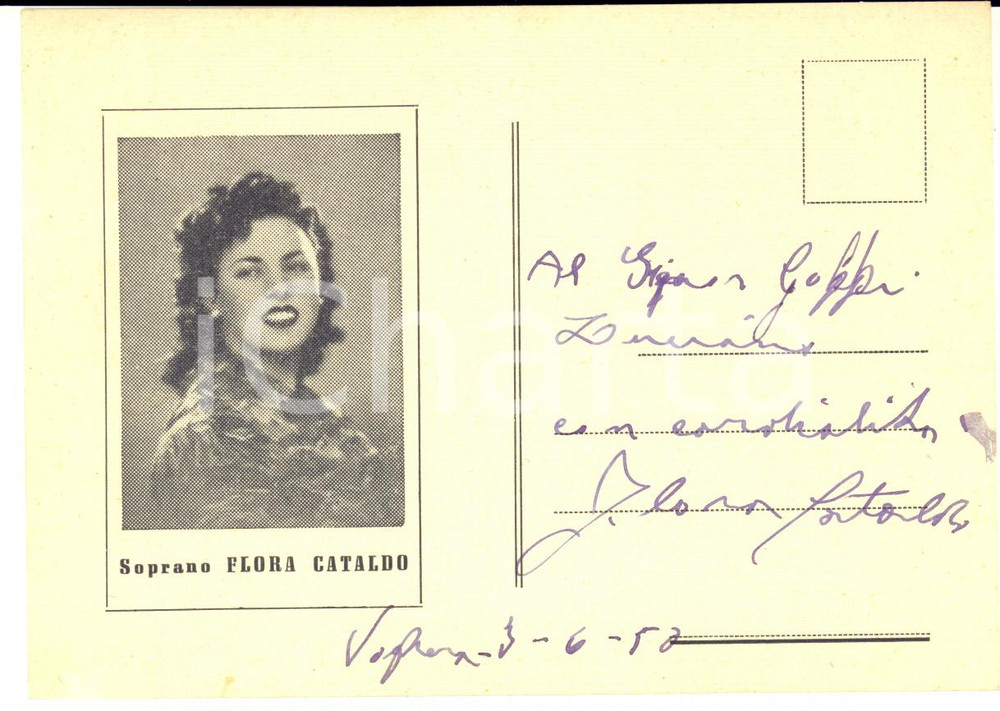 Soprano FLORA CATALDO
Al Signor
Luciano
con cordialità
Flora Cataldo
3-6-52
iCharta